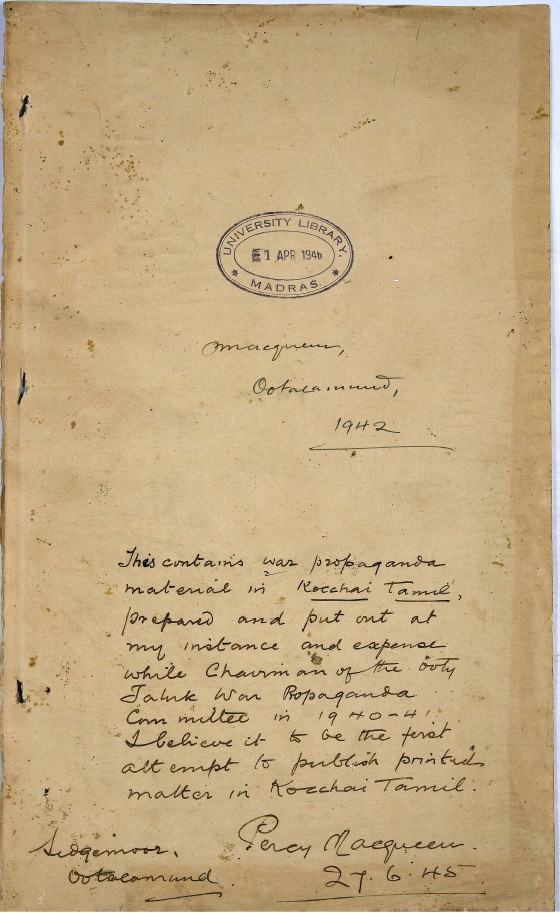 UNIVERSITY LIBRARY,
1 APR 1946
* MADRAS. *
PMacqueen,
Ootacamund,
1942
This contains war propaganda
material in Kocchai Tamil,
prepared and put out at
my instance and expense
while Chairman of the Ooty
Taluk War Propaganda
Committee in 1940-41.
I believe it to be the first
attempt to publish printed
matter in Kocchai Tamil.
Sedgemoor,
Percy Macqueen.
Ootacamund.
27.6.45